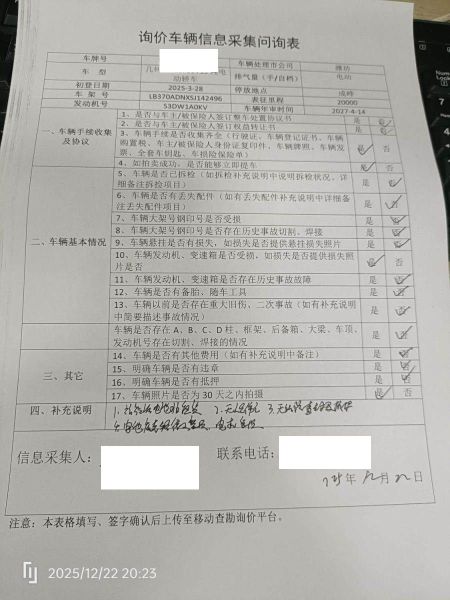 询价车辆信息采集问询表
车牌号 车辆处理市公司 潍坊
车 型 动轿车 排气量（手/自档） 电动
初登日期 2025-3-28 停放地点 成峰
车 架 号 LB370ADNXSJ142496 表征里程 20000
发动机号 53DW1A0KV 车辆年审时间 2027-4-14
一、车辆手续收集及协议
1、是否与车主/被保险人签订整车处置协议书 是 否
2、是否与车主/被保险人签订权益转让书 是 否
3、车辆手续是否收集齐全（行驶证、车辆登记证书、车辆购置税、车主/被保险人身份证复印件、车辆牌照、车辆发票、全套车钥匙、车损险保险单） 是 否
4、如拍卖成功，是否能够立即提车 是 否
二、车辆基本情况
5、车辆是否已拆检（如拆检补充说明中说明拆检状况、详细备注拆检项目） 是 否
6、车辆是否有丢失配件（如有丢失配件补充说明中详细备注丢失配件项目） 是 否
7、车辆大架号钢印号是否受损 是 否
8、车辆大架号钢印号是否存在历史事故切割、焊接 是 否
9、车辆悬挂是否有损失，如损失是否提供悬挂损失照片 是 否
10、车辆发动机、变速箱是否受损，如损失是否提供损失照片是否 是 否
11、车辆发动机、变速箱是否存在历史事故故障 是 否
12、车辆是否有备胎、随车工具 是 否
13、车辆以前是否存在重大旧伤、二次事故（如有补充说明中简要描述事故情况） 是 否
车辆是否存在 A、B、C、D 柱、框架、后备箱、大梁、车顶、发动机号存在切割、焊接的情况 是 否
三、其它
14、车辆是否有其他费用（如有补充说明中备注） 是 否
15、明确车辆是否有违章 是 否
16、明确车辆是否有抵押 是 否
17、车辆照片是否为 30 天之内拍摄 是 否
四、补充说明
信息采集人： 联系电话：
年 月 日
注意：本表格填写、签字确认后上传至移动查勘询价平台。
2025/12/22 20:23